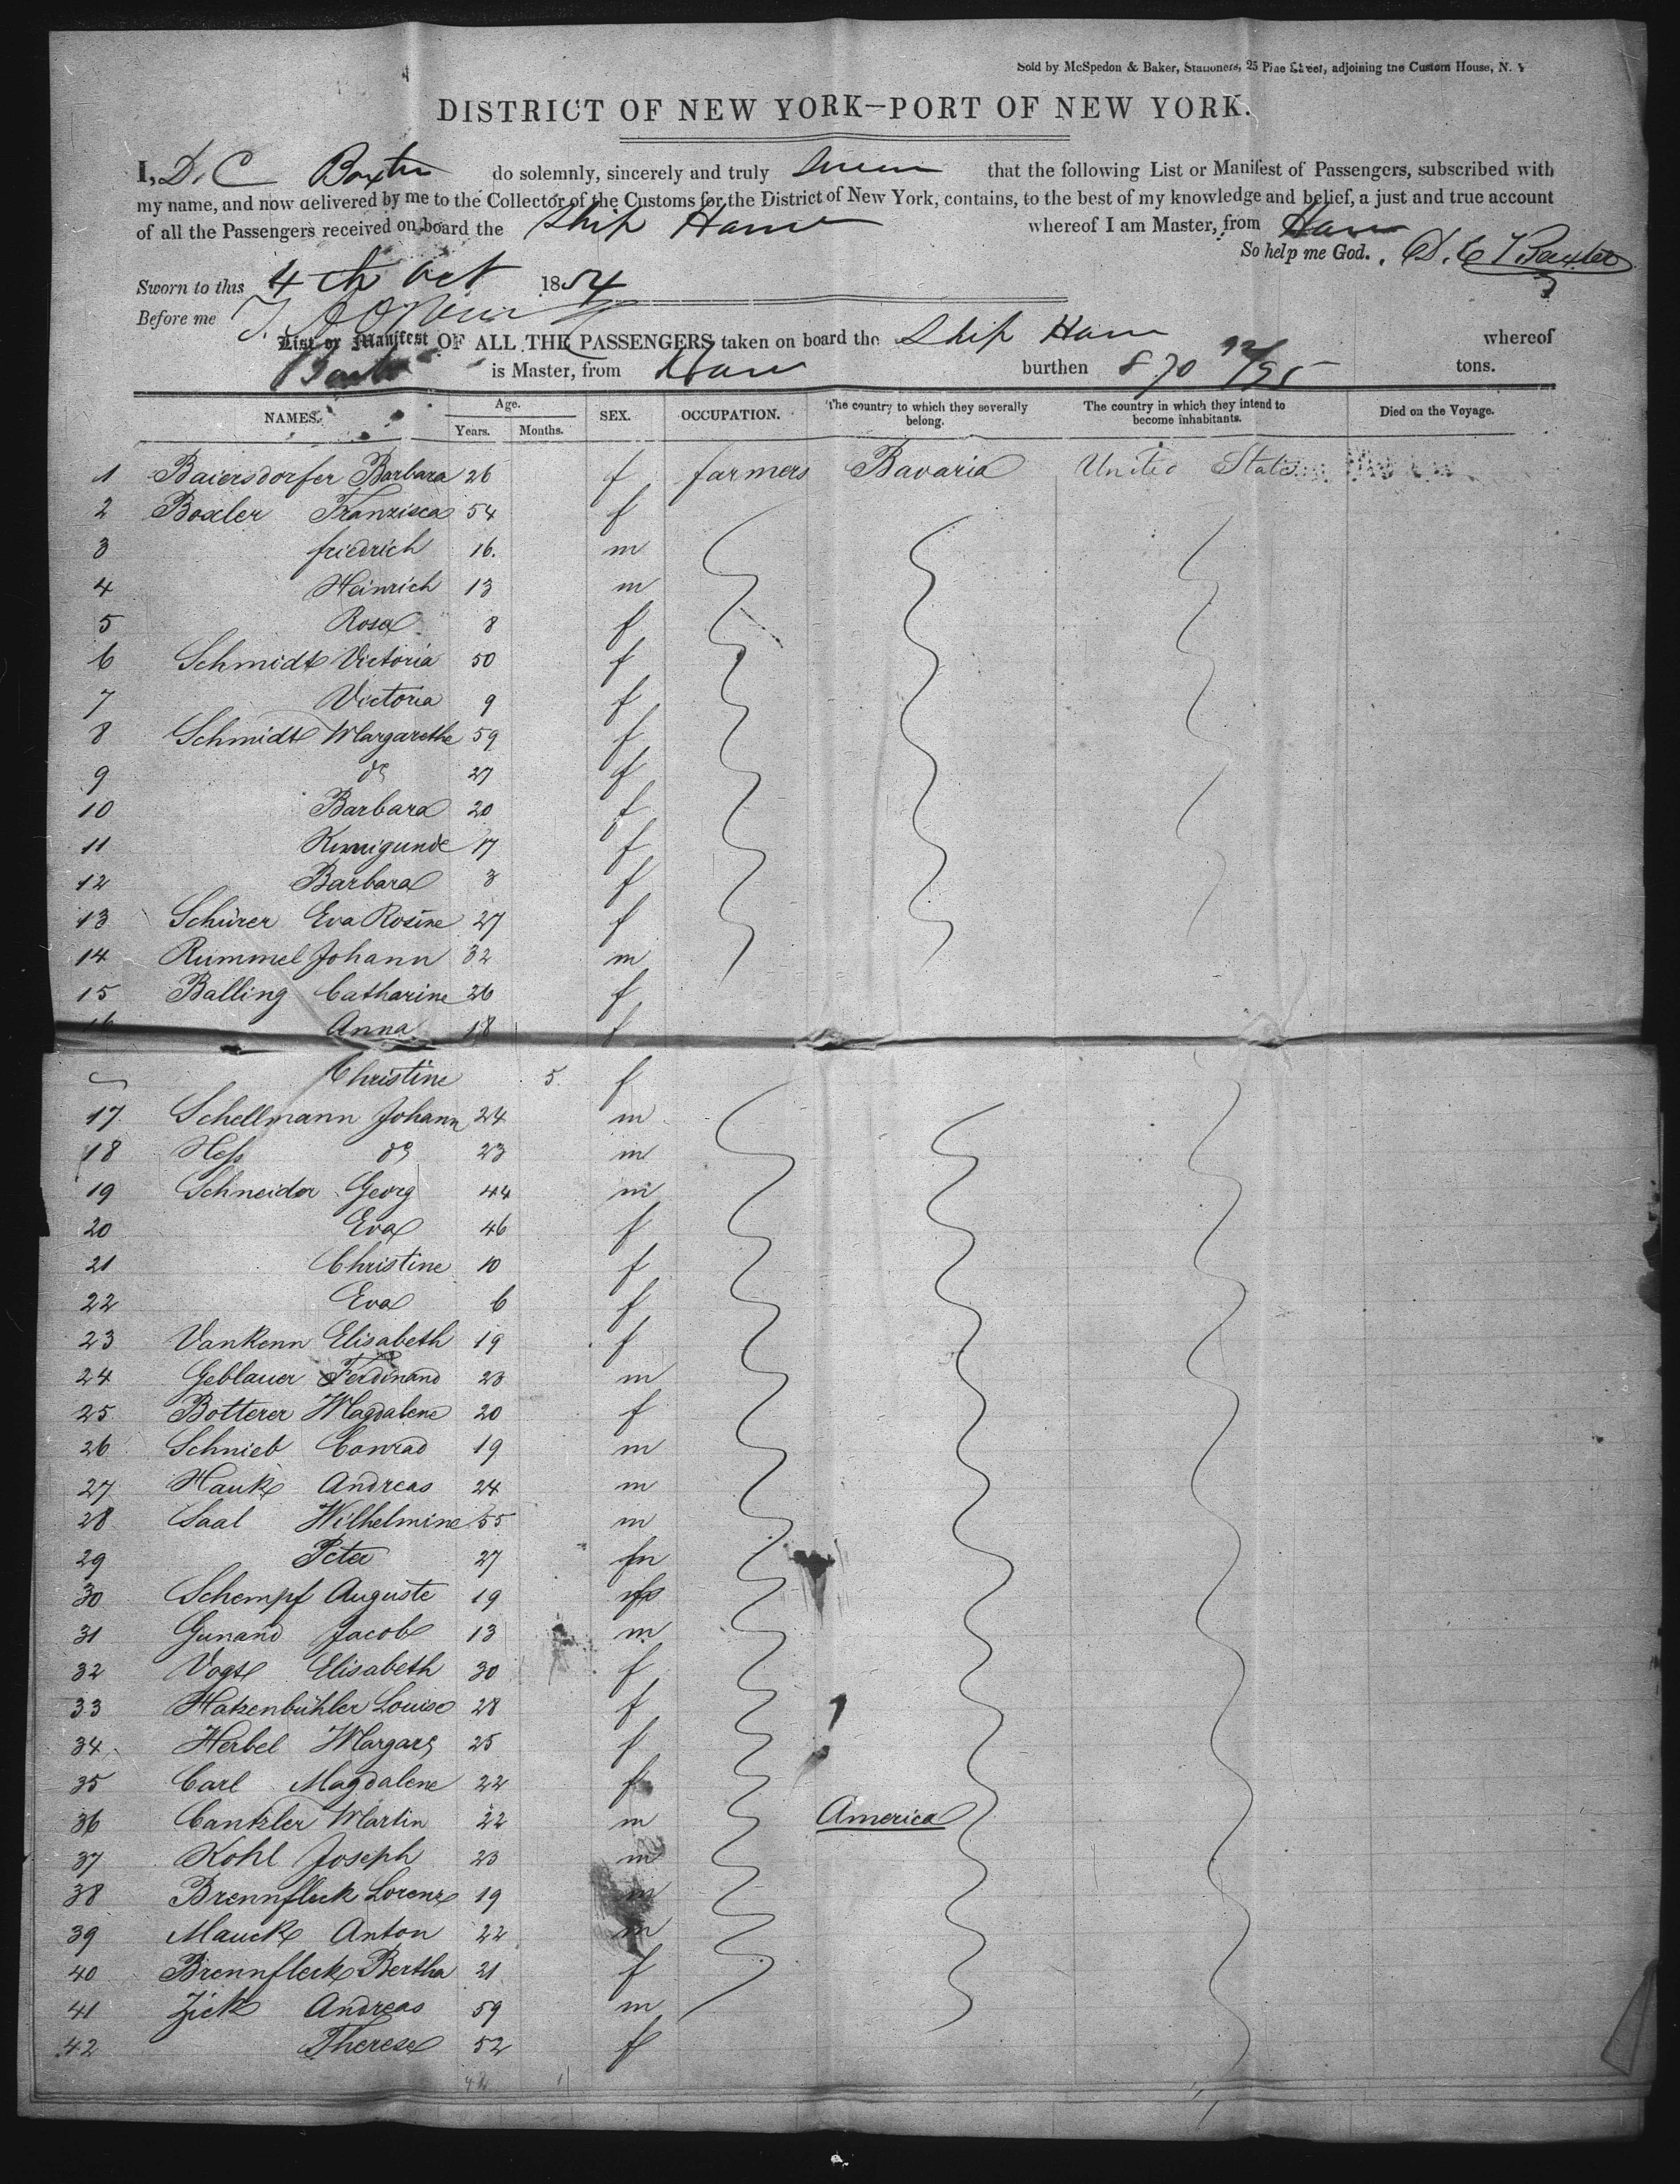 Sold by McSpedon & Baker, Stationers, 25 Pine Street, adjoining the Custom House, N. Y
DISTRICT OF NEW YORK—PORT OF NEW YORK.
I, D. C Baxter do solemnly, sincerely and truly swear that the following List or Manifest of Passengers, subscribed with
my name, and now delivered by me to the Collector of the Customs for the District of New York, contains, to the best of my knowledge and belief, a just and true account
of all the Passengers received on board the Ship Havre whereof I am Master, from Havre
So help me God. D. C Baxter
Sworn to this 4th Oct 1854
Before me
List or Manifest OF ALL THE PASSENGERS taken on board the Ship Havre whereof
Baxter is Master, from Havre burthen 870 92/95 tons.
NAMES. Age. Years. Months. SEX. OCCUPATION. The country to which they severally belong. The country in which they intend to become inhabitants. Died on the Voyage.
1 Baiersdorfer Barbara 26 f farmers Bavaria United States
2 Boxler Franzisca 54 f
3 friedrich 16. m
4 Heinrich 13 m
5 Rosa 8 f
6 Schmidt Victoria 50 f
7 Victoria 9 f
8 Schmidt Margarethe 59 f
9 do 27 f
10 Barbara 20 f
11 Kunigunde 17 f
12 Barbara 3 f
13 Schürer Eva Rosine 27 f
14 Rummel Johann 32 m
15 Balling Catharine 26 f
16 Anna 18 f
Christine 5 f
17 Schellmann Johann 24 m
18 Hess do 23 m
19 Schneider Georg 44 m
20 Eva 46 f
21 Christine 10 f
22 Eva 6 f
23 VanKenn Elisabeth 19 f
24 Geblauer Ferdinand 23 m
25 Botterer Magdalene 20 f
26 Schnieb Conrad 19 m
27 Hauk Andreas 24 m
28 Saal Wilhelmine 55 m
29 Peter 27 m
30 Schempf Auguste 19
31 Gunand Jacob 13 m
32 Vogt Elisabeth 30 f
33 Hatzenbühler Louise 28 f
34 Herbel Margar 25 f
35 Carl Magdalene 22 f
36 Cantzler Martin 22 m America
37 Kohl Joseph 23 m
38 Brennfleck Lorenz 19 m
39 Mauck Anton 22 m
40 Brennfleck Bertha 21 f
41 Zick Andreas 59 m
42 Therese 52 f
42 1